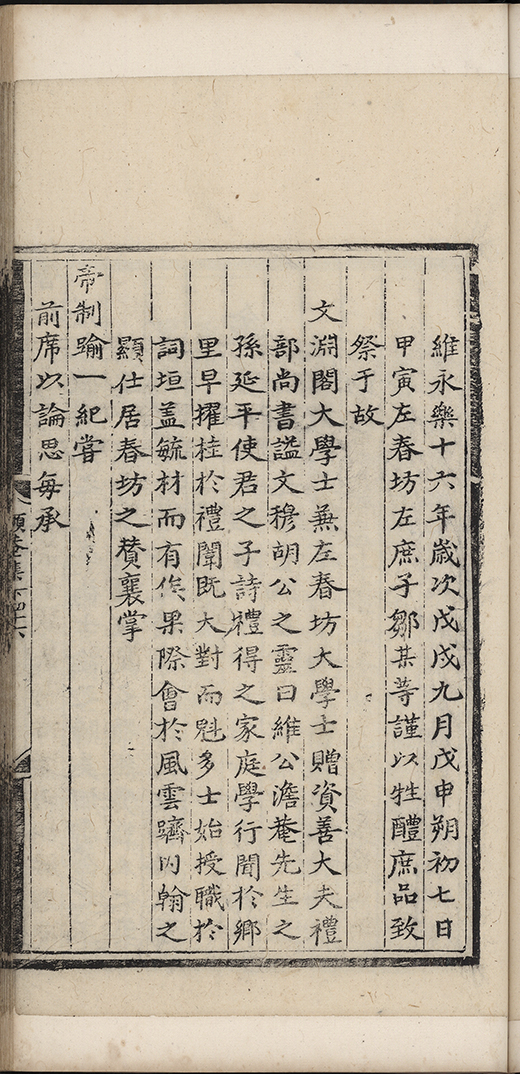 維永樂十六年歲次戊戌九月戊申朔初七日
甲寅左春坊左庶子鄒某等謹以牲醴庶品致
祭于故
文淵閣大學士兼左春坊大學士贈資善大夫禮
部尚書謚文穆胡公之靈曰維公澹菴先生之
孫延平使君之子詩禮得之家庭學行聞於鄉
里早擢桂於禮闈旣大對而魁多士始授職於
詞垣盖毓材而有俟果際會於風雲躋内翰之
顯仕居春坊之贊襄掌
帝制踰一紀嘗
前席以論思每承
頤菴集